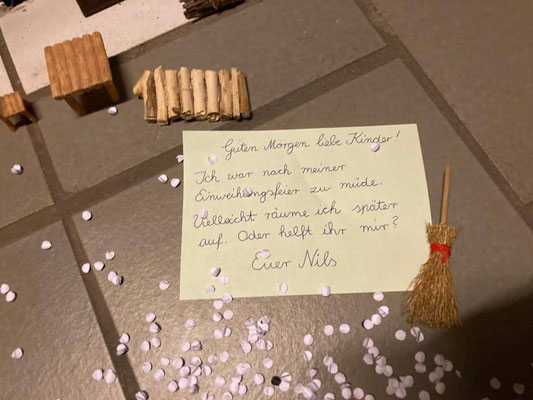 Guten Morgen liebe Kinder!
Ich war nach meiner
Einweihungsfeier zu müde.
Vielleicht räume ich später
auf. Oder helft ihr mir?
Euer Nils